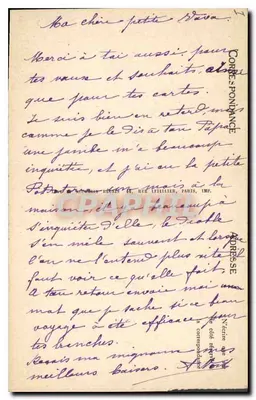 Ma chère petite Vava
Merci à toi aussi, pour
tes vœux et souhaits, ainsi
que pour tes cartes.
Je suis bien en retard, mais
comme je le dis à ton Papa
une jambe m'a beaucoup
inquiétée, et j'ai eu la petite
à la
maison. Il y a beaucoup à
s'inquiéter d'elle, le diable
s'en mêle souvent et lorsque
l'on ne l'entend plus vite il
faut voir ce qu'elle fait.
A ton retour envoie moi un
mot que je sache si ce beau
voyage a été efficace pour
tes bronches.
Reçois ma mignonne mes
meilleurs baisers.
CORRESPONDANCE
ADRESSE
PARIS
CPAPHIL